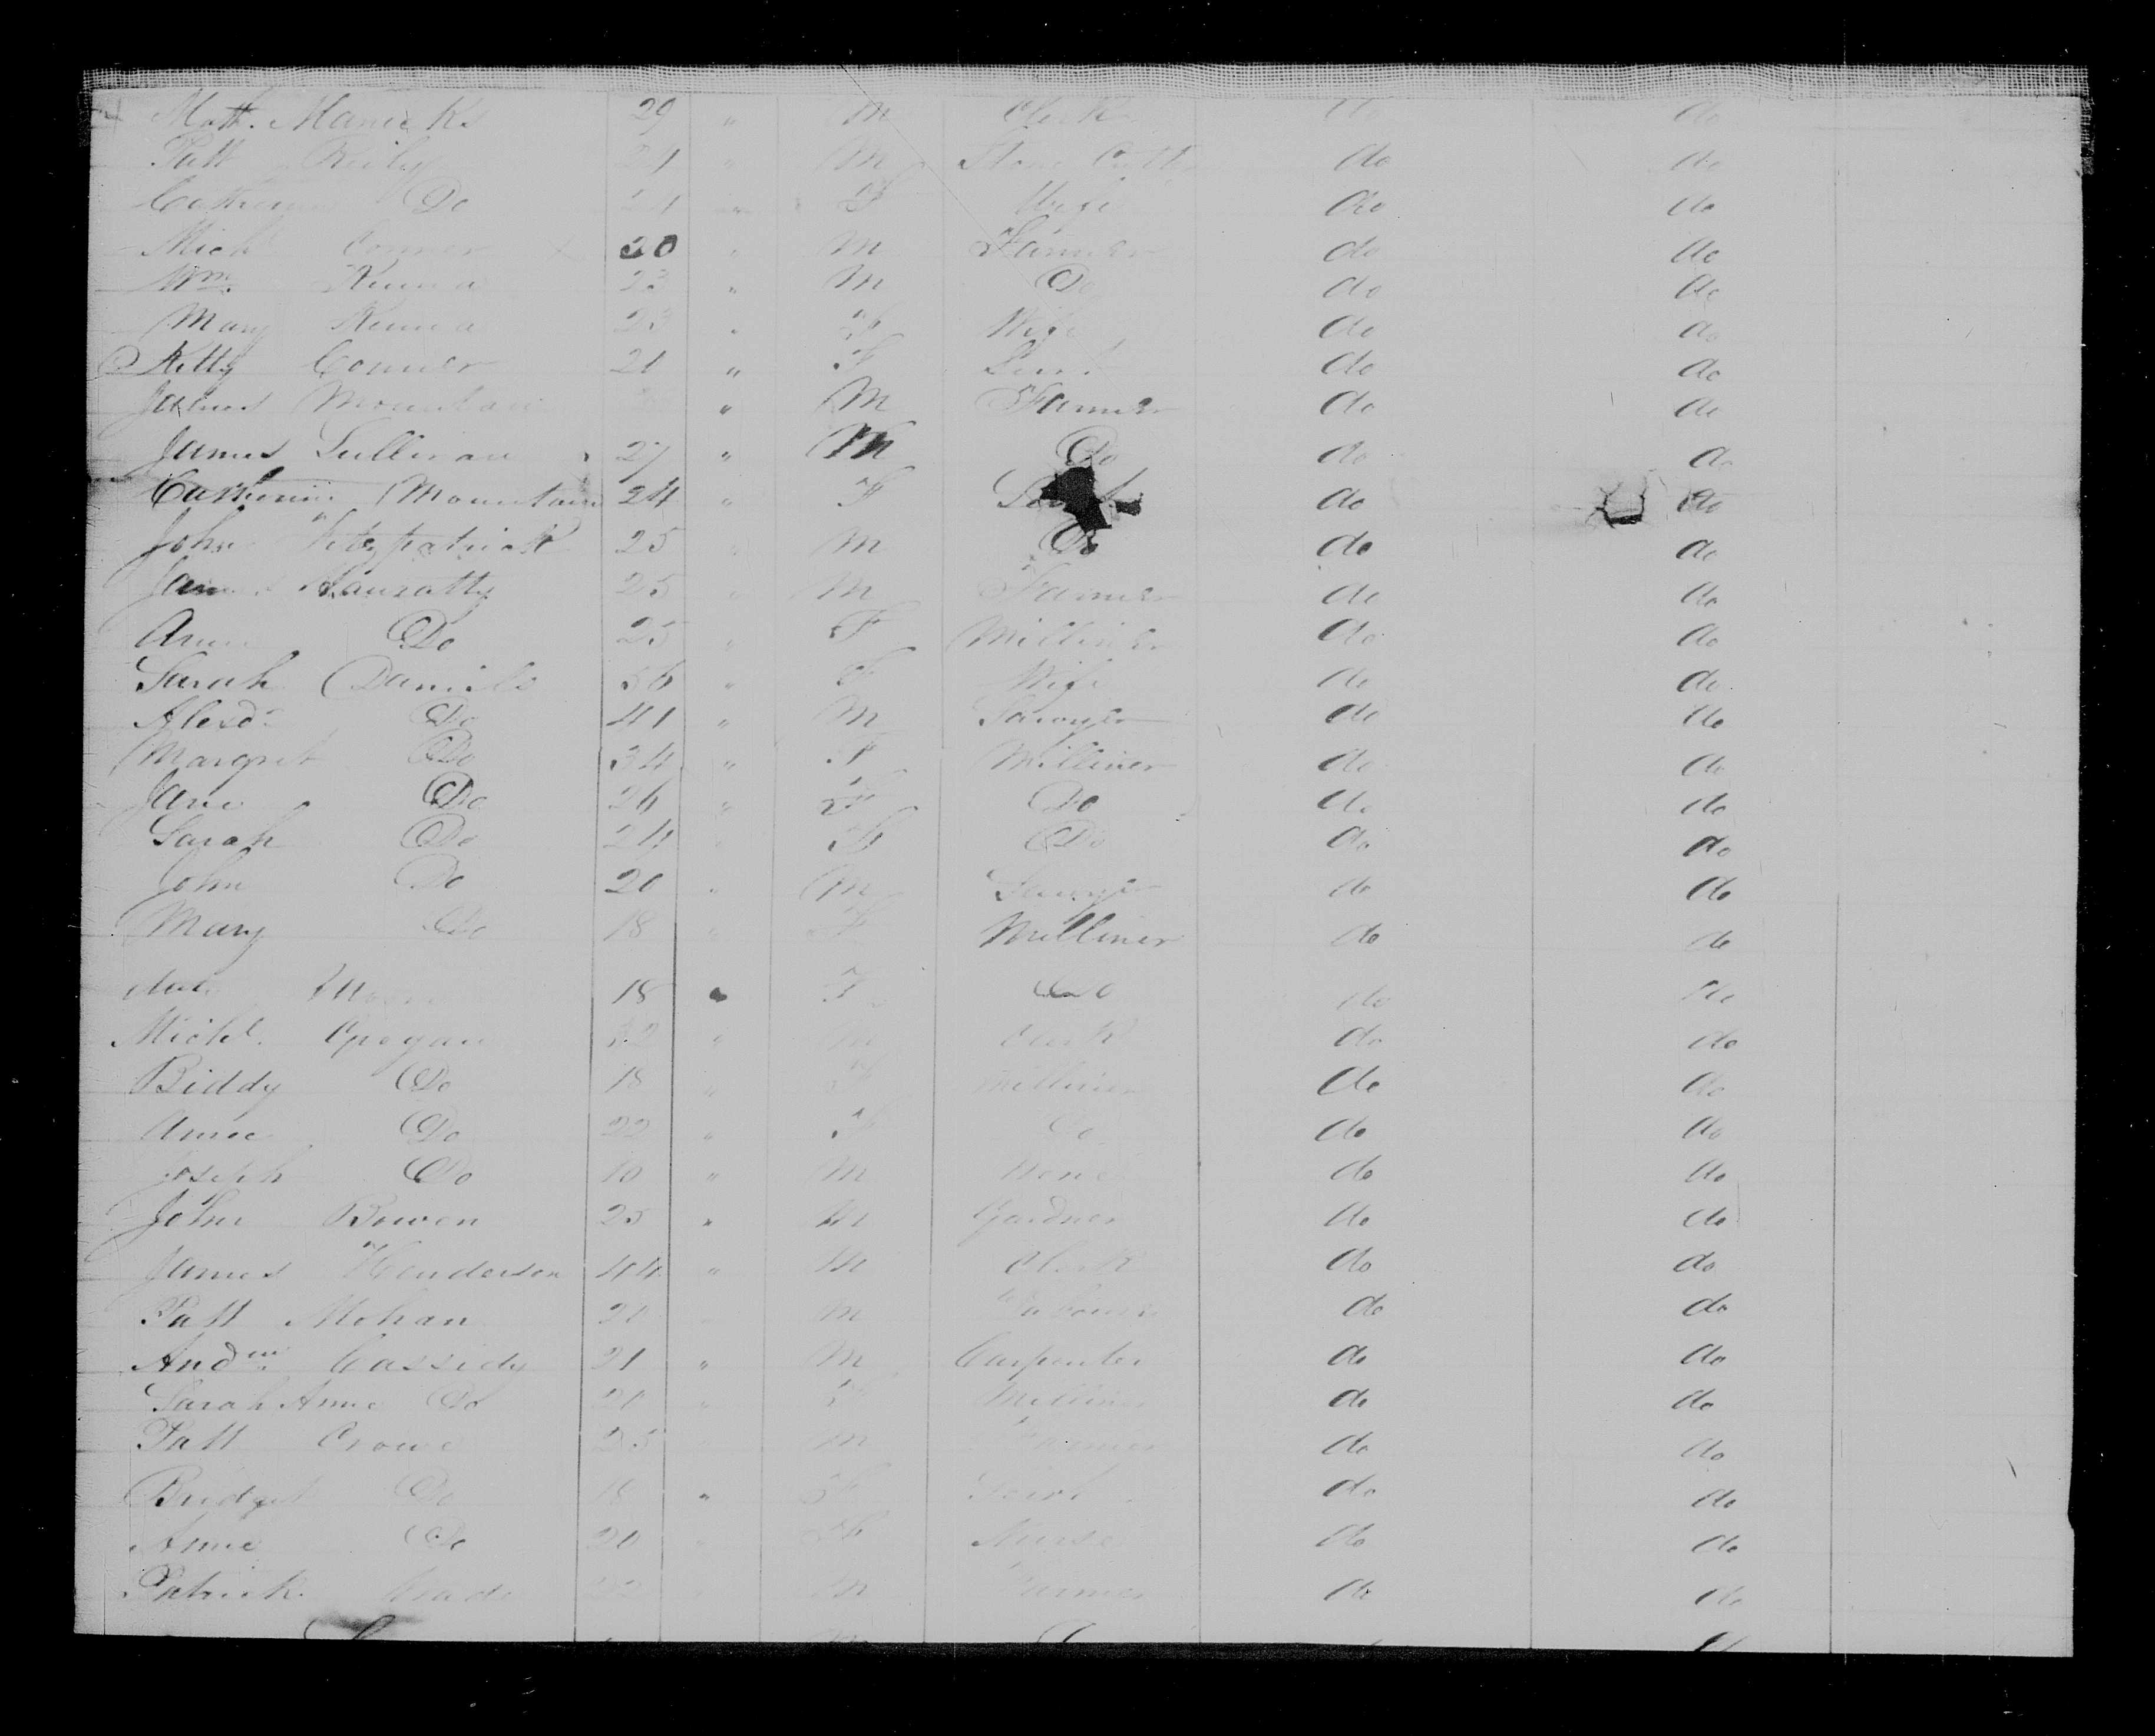 Matt. Manicks 29 " M Clerk do do
Patt Reily 21 " M Stone Cutter do do
Catherine Do 21 " F Wife do do
Mich Conner 20 " M Farmer do do
Wm. Kenna 23 " M Do do do
Mary Kenna 23 " F Wife do do
Kitty Conner 21 " F Servt do do
James Mountain " M Farmer do do
James Sullivan 27 " M Do do do
Catherine Mountain 24 " F do do
John Fitzpatrick 25 " M Do do do
James 25 " M Farmer do do
Anne Do 25 " F Milliner do do
Sarah Daniels 56 " F Wife do do
Alexdr Do 41 " M Sawyer do do
Margret Do 34 " F Milliner do do
Jane Do 26 " F Do do do
Sarah Do 24 " F Do do do
John Do 20 " M Sawyer do do
Mary Do 18 " F Milliner do do
18 " F Do do do
Michl. Gregan 32 " M Clerk do do
Biddy Do 18 " F Milliner do do
Anne Do 22 " F Do do do
Joseph Do 10 " M None do do
John Bowen 25 " M Gardner do do
James Henderson 44 " M Clerk do do
Patt Mohan 20 " M Labourer do do
Andw. Cassidy 21 " M Carpenter do do
Sarah Anne Do 20 " F Milliner do do
Patt Crowe 25 M Farmer do do
Bridget Do 18 " F Servt do do
Anne Do 20 " F Nurse do do
Patrick 22 M Farmer do do